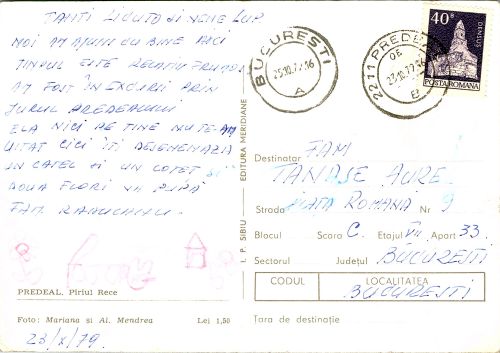 TANTI LICUTO și NENE LUP
NOI AM AJUNS CU BINE AICI
TIMPUL ESTE RELATIV FRUMOS
AM FOST ÎN EXCURSII PRIN
JURUL PREDEALULUI
ELA NICI PE TINE NU TE-AM
UITAT CĂCI ÎȚI
UN CĂȚEL și UN COȚEȚ și
DOUĂ FLORI VĂ PUPĂ
FAM.
PREDEAL. Pîrîul Rece
Foto: Mariana și Al. Mendrea Lei 1,50
23/X/79.
I. P. SIBIU EDITURA MERIDIANE
BUCUREȘTI
25.10.79.16
A
2211 PREDEAL
DE
23.10.79
B
40B
DENSUȘ
POSTA ROMANA
Destinatar FAM
TANASE AURE
Strada PIAȚA ROMANA Nr 9
Blocul Scara C. Etajul VII Apart 33.
Sectorul Județul BUCUREȘTI
CODUL LOCALITATEA
BUCUREȘTI
Țara de destinație